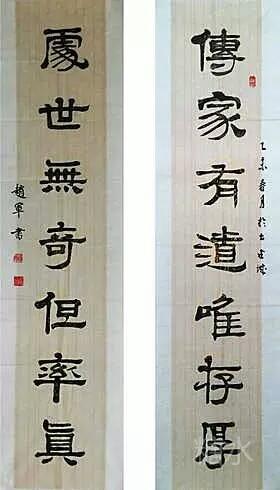 傳家有道唯存厚
乙未春月於
處世無奇但率真
趙軍書